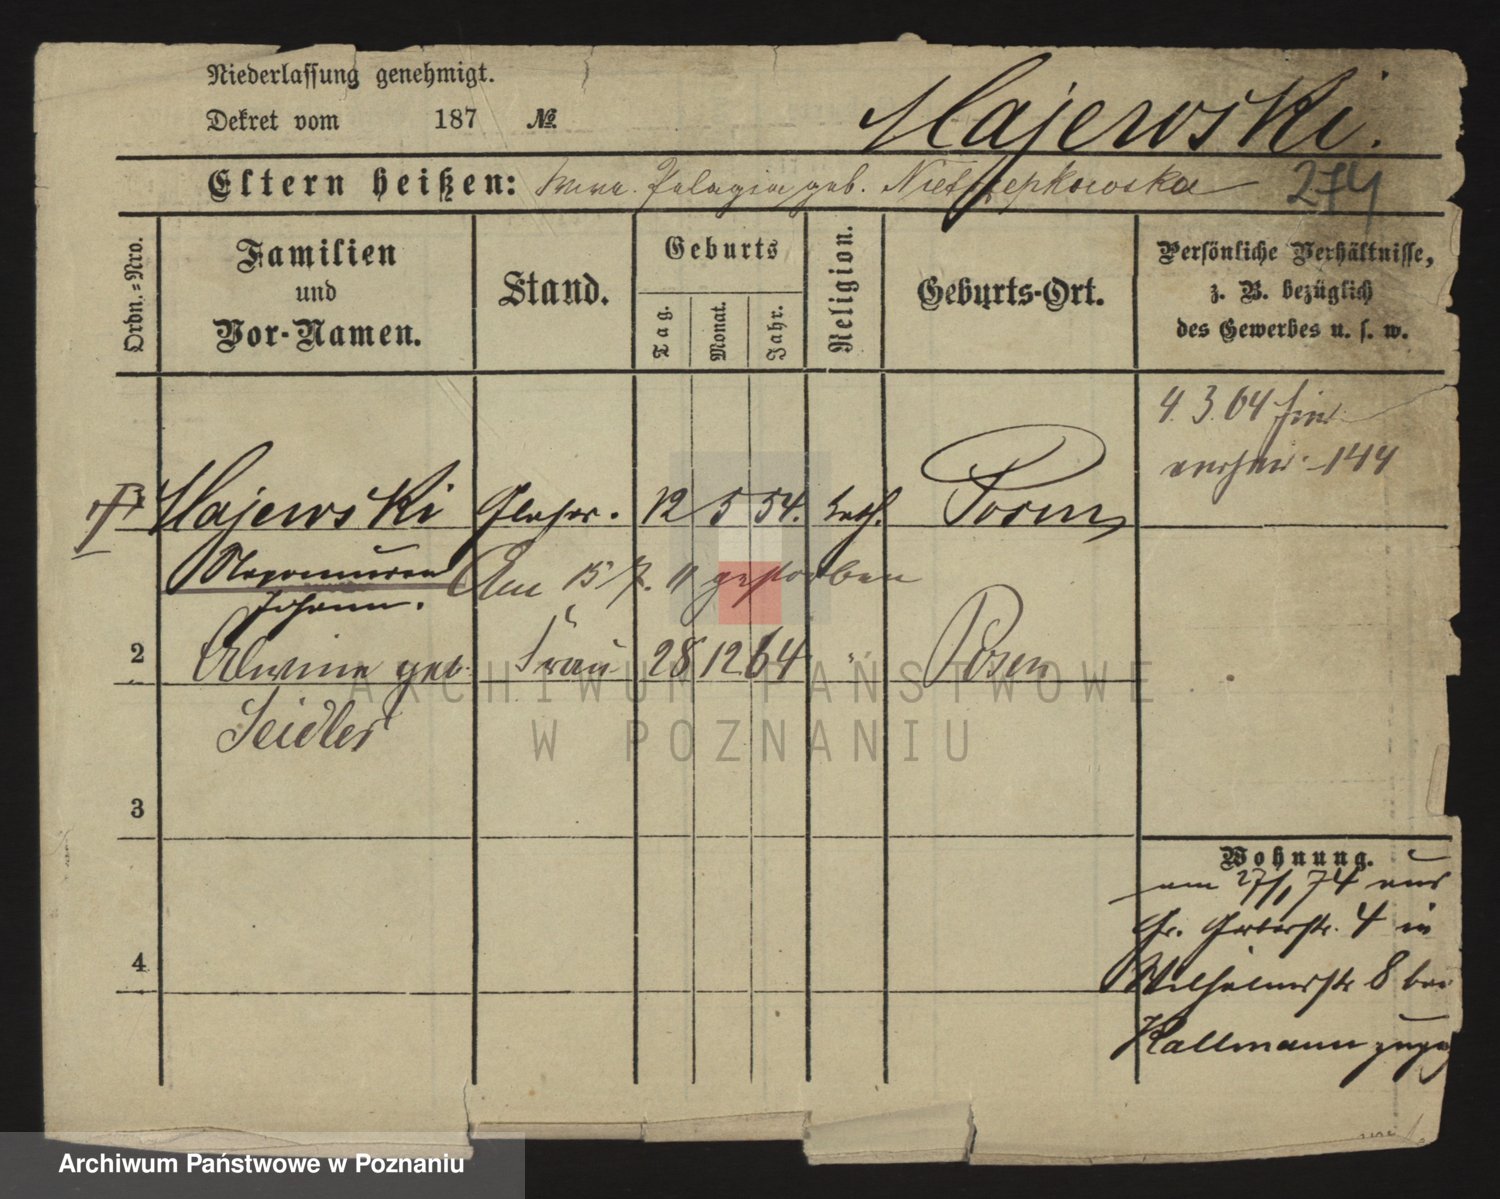 Niederlassung genehmigt.
Dekret vom 187 №
Majewski.
Eltern heißen: Pelagia geb. Nietrzepkowska
274
Ordn.-Nro.
Familien
und
Vor-Namen.
Stand.
Geburts
Tag.
Monat.
Jahr.
Religion.
Geburts-Ort.
Persönliche Verhältnisse,
z. B. bezüglich
des Gewerbes u. s. w.
4. 3. 64 hier
144
Majewski Glaser. 12 5 54. kath. Posen
Nepomucen
Johann.
Am 15 7. 11 gestorben
2 Alwine geb. Frau 28 12 64 " Posen
Seidler
3
4
Wohnung.
am 27/1 74 aus
Gr. Gerberstr. 4 in
Wilhelmstr 8 bei
Kallmann zugz
ARCHIWUM PAŃSTWOWE
W POZNANIU
Archiwum Państwowe w Poznaniu